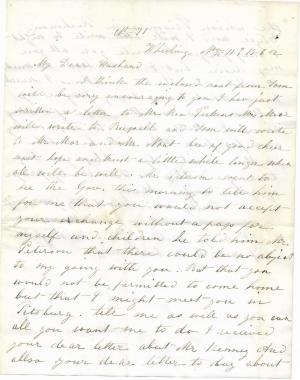 No 21
Wheeling Nov 11th 1862
My Dear Husband
I think the inclosed note from Tom
will be very encouraging to you I have just
written a letter to Mr
will write to Russell and Tom will write
to Mr and Mr be of good cheer
hope and trust a little while longer when
all will be well. Mr Peterson went to
see the Gov. this morning to tell him
for me that you would not accept
your exchange without a pass for
myself and children he told him Mr
Peterson that there could be no objection
to my going with you. But that you
would not be permitted to come home
but that I might meet you in
Pitsburg. tell me as well as you can
all you want me to do I received
your dear letter about Mr Kenney And
allso your dear letter to day about